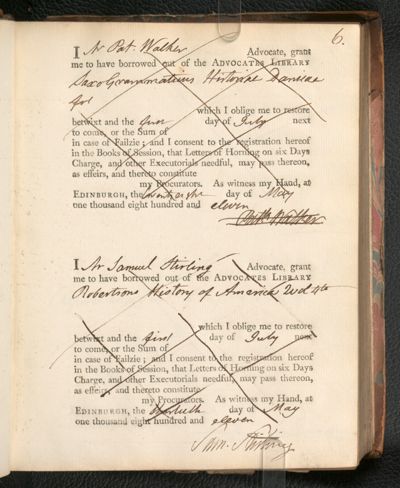 6.
I Mr Pat. Walker Advocate, grant
me to have borrowed out of the ADVOCATES LIBRARY
Saxo Grammaticus Historiae Danicae
fol
which I oblige me to restore
betwixt and the first day of July next
to come, or the Sum of
in case of Failzie; and I consent to the registration hereof
in the Books of Session, that Letters of Horning on six Days
Charge, and other Executorials needful, may pass thereon,
as effeirs, and thereto constitute
my Procurators. As witness my Hand, at
EDINBURGH, the day of May
one thousand eight hundred and eleven
Walker
I Mr Samuel Stirling Advocate, grant
me to have borrowed out of the ADVOCATES LIBRARY
Robertsons History of America 2vol 4to
which I oblige me to restore
betwixt and the first day of July next
to come, or the Sum of
in case of Failzie; and I consent to the registration hereof
in the Books of Session, that Letters of Horning on six Days
Charge, and other Executorials needful, may pass thereon,
as effeirs, and thereto constitute
my Procurators. As witness my Hand, at
EDINBURGH, the day of May
one thousand eight hundred and eleven
Sam. Stirling